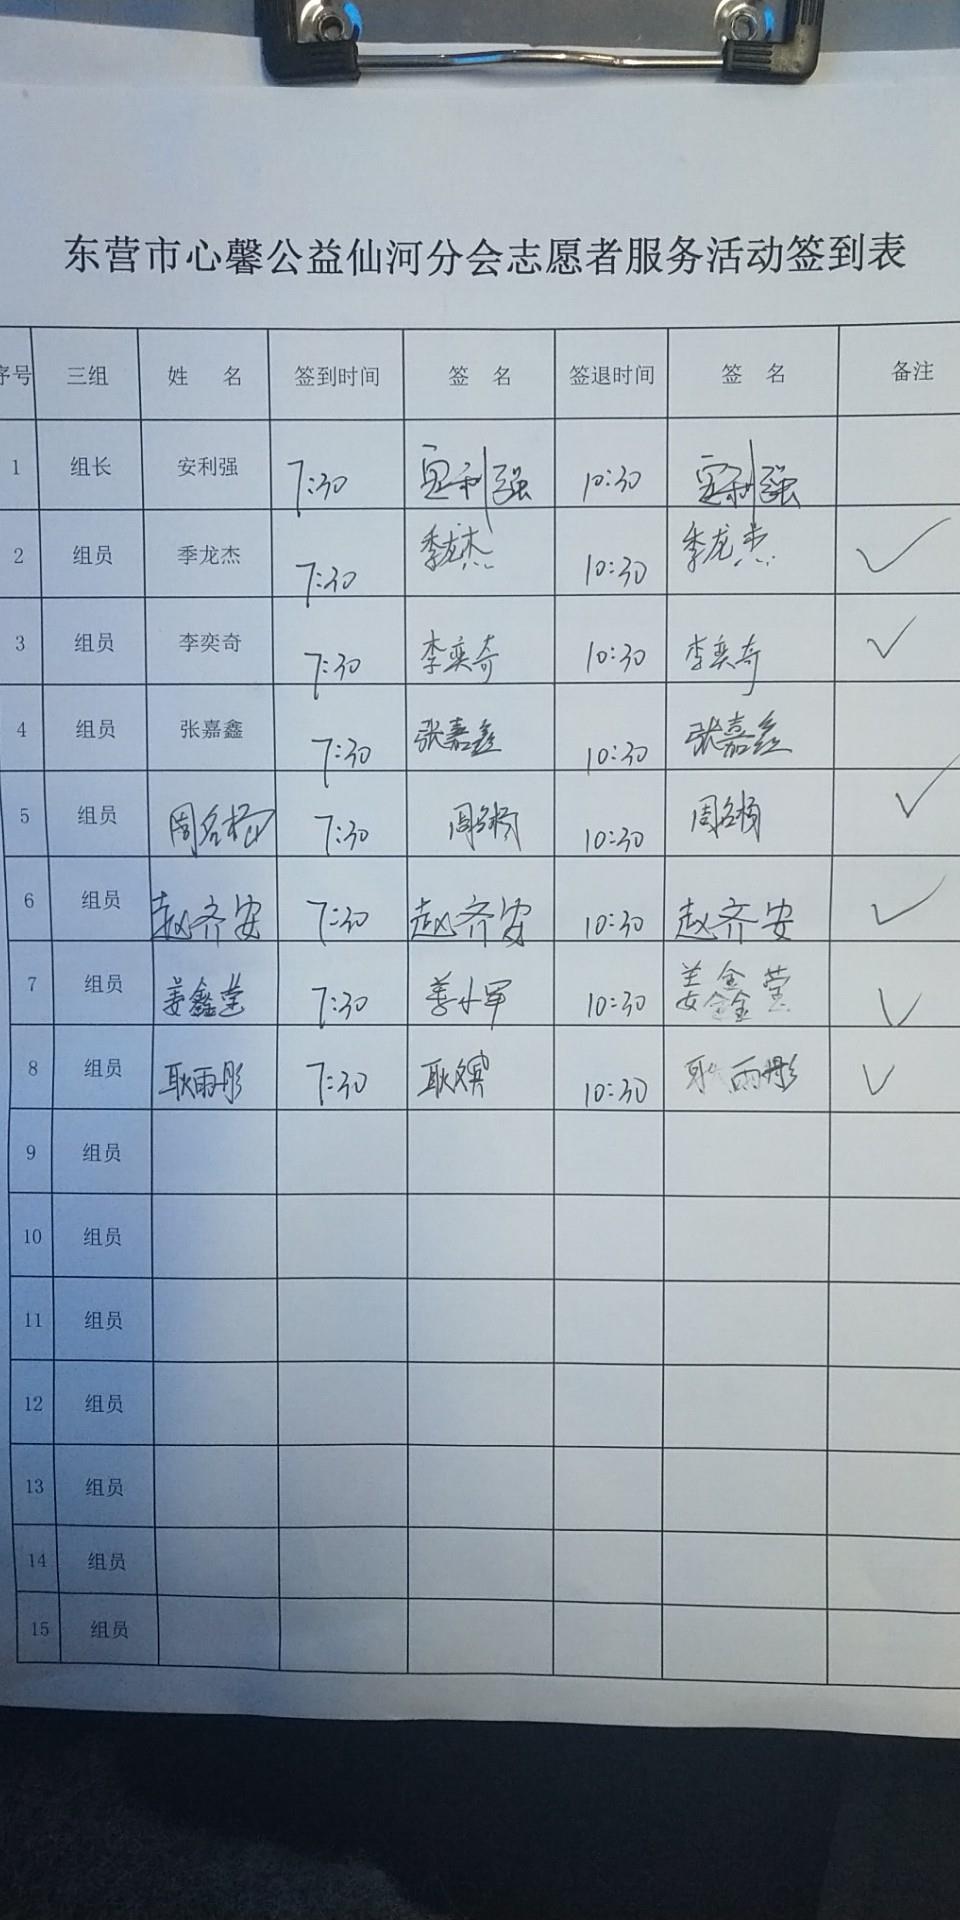 东营市心馨公益仙河分会志愿者服务活动签到表
序号 三组 姓 名 签到时间 签 名 签退时间 签 名 备注
1 组长 安利强 7:30 安利强 10:30 安利强
2 组员 季龙杰 7:30 季龙杰 10:30 季龙杰 ✓
3 组员 李奕奇 7:30 李奕奇 10:30 李奕奇 ✓
4 组员 张嘉鑫 7:30 张嘉鑫 10:30 张嘉鑫
5 组员 周名杨 7:30 周名杨 10:30 周名杨 ✓
6 组员 赵齐安 7:30 赵齐安 10:30 赵齐安 ✓
7 组员 姜鑫莹 7:30 姜小军 10:30 姜鑫莹 ✓
8 组员 耿雨彤 7:30 10:30 耿雨彤 ✓
9 组员
10 组员
11 组员
12 组员
13 组员
14 组员
15 组员